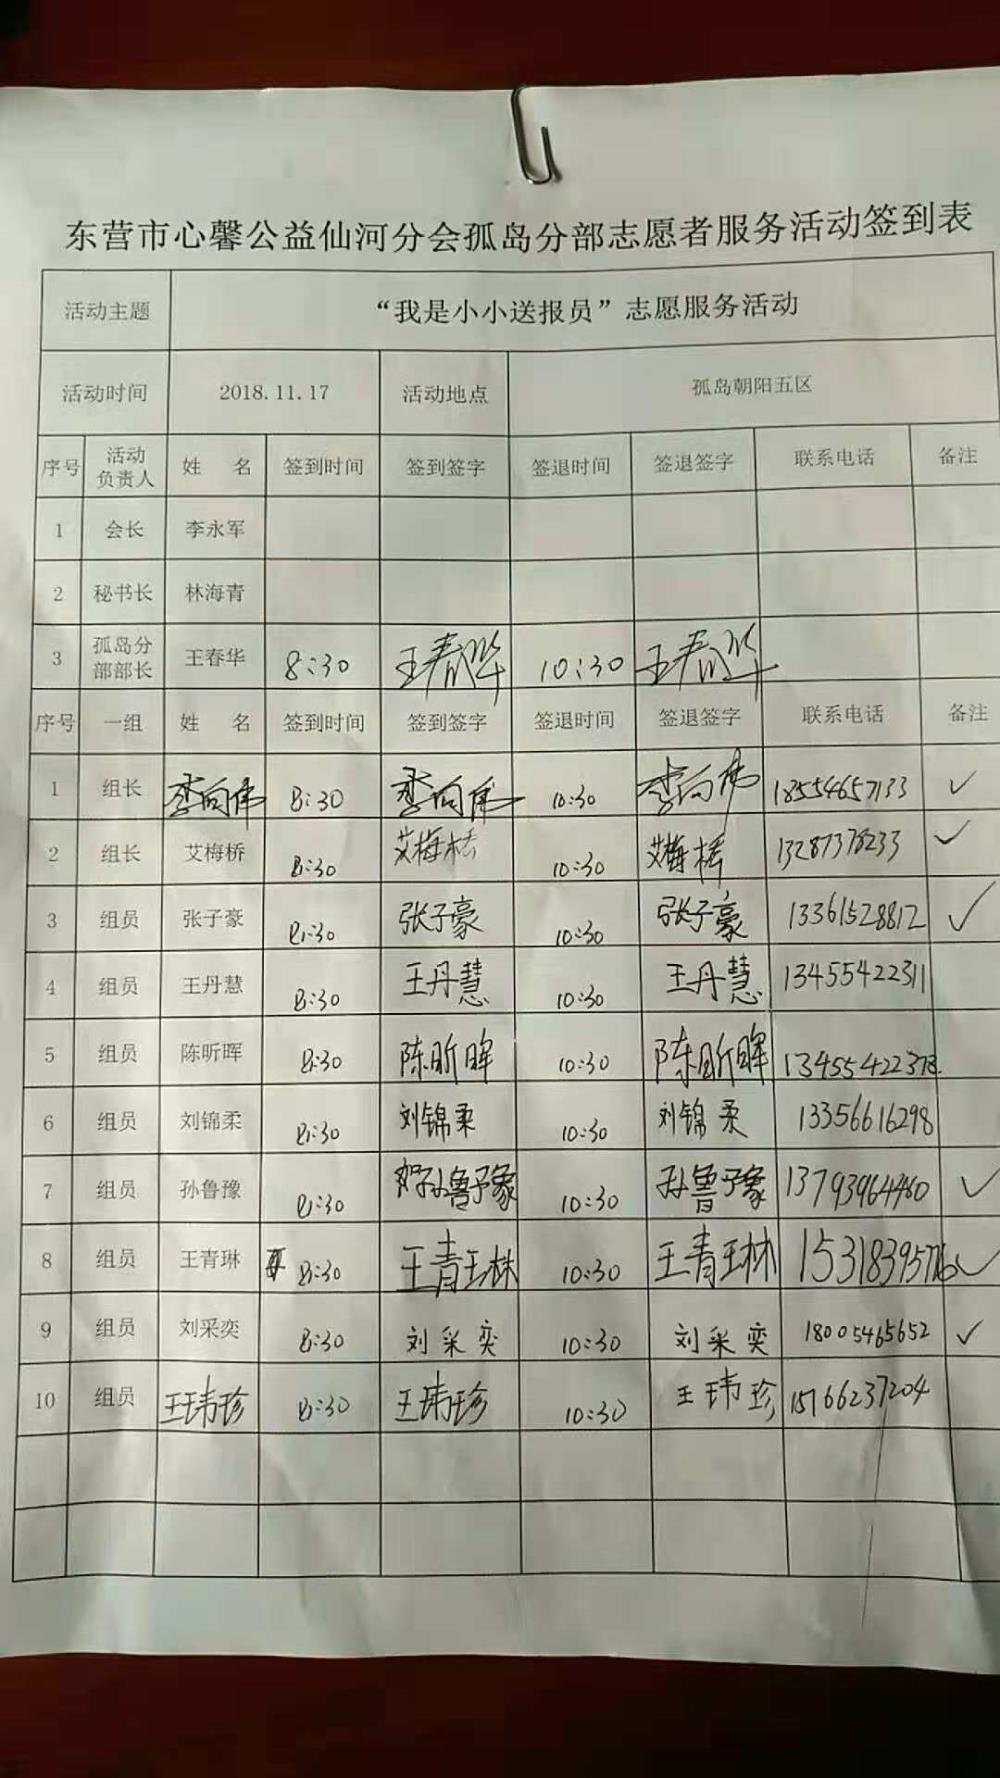 东营市心馨公益仙河分会孤岛分部志愿者服务活动签到表
活动主题 “我是小小送报员”志愿服务活动
活动时间 2018.11.17 活动地点 孤岛朝阳五区
序号 活动负责人 姓 名 签到时间 签到签字 签退时间 签退签字 联系电话 备注
1 会长 李永军
2 秘书长 林海青
3 孤岛分部部长 王春华 8:30 王春华 10:30 王春华
序号 一组 姓 名 签到时间 签到签字 签退时间 签退签字 联系电话 备注
1 组长 李向伟 8:30 李向伟 10:30 李向伟 18554657133 ✓
2 组长 艾梅桥 8:30 艾梅桥 10:30 艾梅桥 13287378233 ✓
3 组员 张子豪 8:30 张子豪 10:30 张子豪 13361528812 ✓
4 组员 王丹慧 8:30 王丹慧 10:30 王丹慧 13455422311
5 组员 陈昕晖 8:30 陈昕晖 10:30 陈昕晖 13455422378
6 组员 刘锦柔 8:30 刘锦柔 10:30 刘锦柔 13356616298
7 组员 孙鲁豫 8:30 孙鲁豫 10:30 孙鲁豫 13793964480 ✓
8 组员 王青琳 8:30 王青琳 10:30 王青琳 ✓
9 组员 刘采奕 8:30 刘采奕 10:30 刘采奕 18005465652 ✓
10 组员 王玮珍 8:30 王玮珍 10:30 王玮珍 15166237204